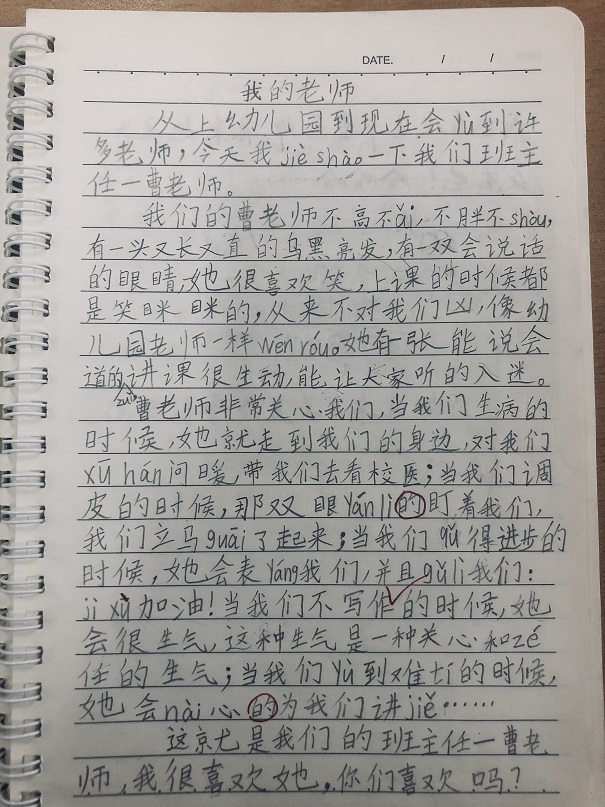 DATE. / /
我的老师
从上幼儿园到现在会yù到许
多老师,今天我jiè shào一下我们班主
任一曹老师。
我们的曹老师不高不ǎi,不胖不shòu,
有一头又长又直的乌黑亮发,有一双会说话
的眼睛,她很喜欢笑,上课的时候都
是笑眯眯的,从来不对我们凶,像幼
儿园老师一样wēn róu。她有一张能说会
道的zuǐ,讲课很生动,能让大家听的入迷。
曹老师非常关心我们,当我们生病的
时候,她就走到我们的身边,对我们
xū hán问暖,带我们去看校医;当我们调
皮的时候,那双眼yán lì的盯着我们,
我们立马guāi了起来;当我们qǔ得进步的
时候,她会表yáng我们,并且gǔ lì我们:
jì xù加油!当我们不写作的时候,她
会很生气,这种生气是一种关心和zé
任的生气;当我们yù到难tí的时候,
她会nài心的为我们讲jiě……
这就是我们的班主任一曹老
师,我很喜欢她,你们喜欢吗?